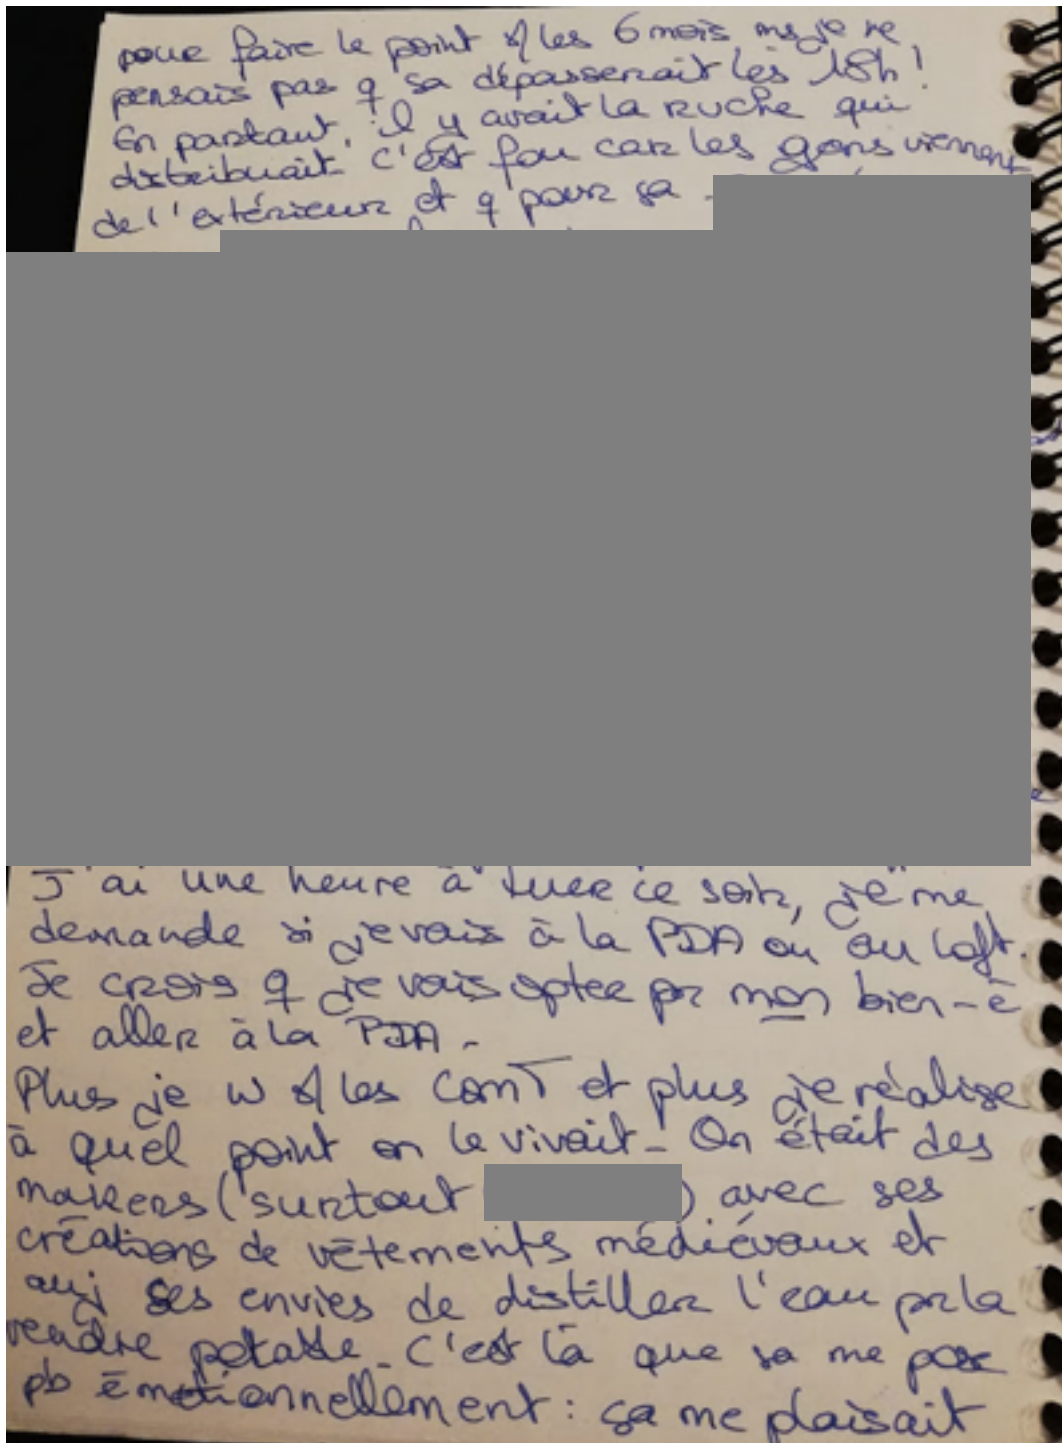 pour faire le point s/ les 6 mois ms je ne
pensais pas q sa dépasserait les 18h !
En partant, il y avait la ruche qui
distribuait. C'est fou car les gens viennent
de l'extérieur et q pour sa
J'ai une heure à tuer ce soir, je me
demande si je vais à la PDA ou au loft.
Je crois q je vais opter pr mon bien-ê
et aller à la PDA.
Plus je w s/ les comT et plus je réalise
à quel point on le vivait_ On était des
makers (surtout ) avec ses
créations de vêtements médiévaux et
auj ses envies de distiller l'eau pr la
rendre potable_ C'est là que sa me pose
pb émotionnellement : sa me plaisait